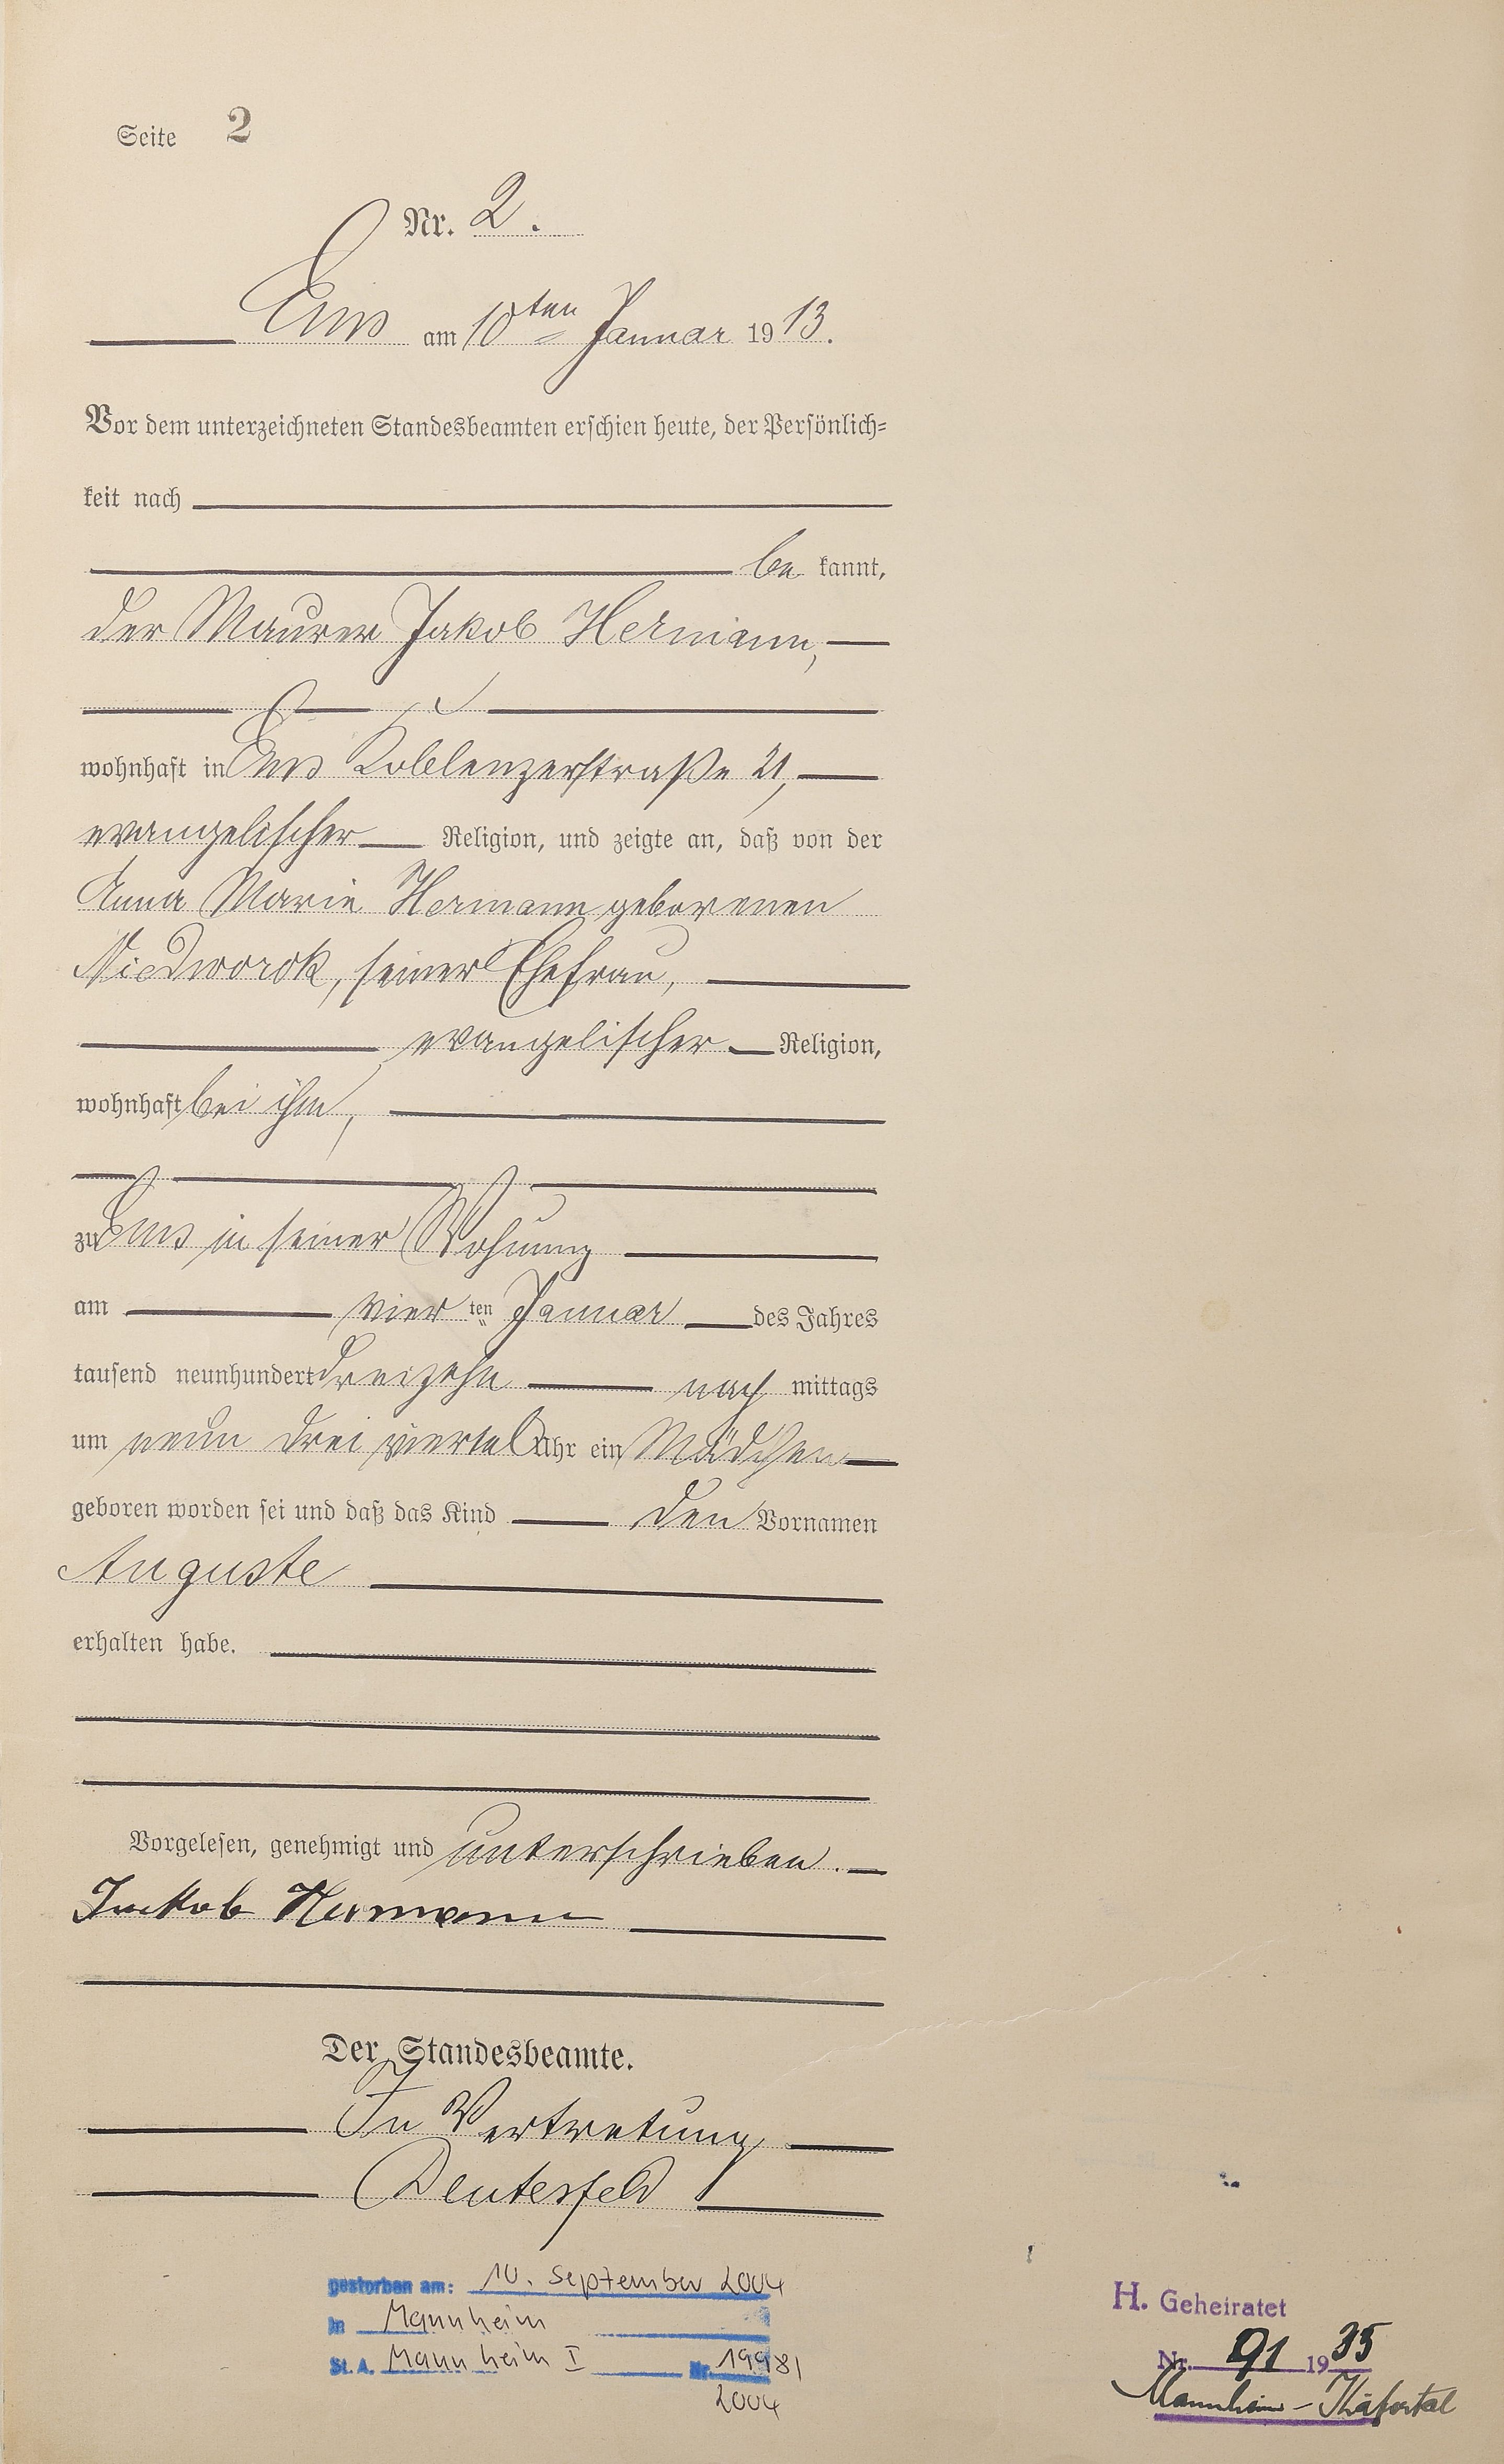 Seite 2
Nr. 2.
Ems am 10ten Januar 1913.
Vor dem unterzeichneten Standesbeamten erschien heute, der Persönlich=
keit nach
be kannt,
der Maurer Jakob Hermann,
wohnhaft in Ems Koblenzerstraße 21,
evangelischer Religion, und zeigte an, daß von der
Anna Marie Hermann geborenen
Niedworok, seiner Ehefrau,
evangelischer Religion,
wohnhaft bei ihm,
zu Ems in seiner Wohnung
am vier ten Januar des Jahres
tausend neunhundert dreizehn nach mittags
um neun drei viertel Uhr ein Mädchen
geboren worden sei und daß das Kind den Vornamen
Auguste
erhalten habe.
Vorgelesen, genehmigt und unterschrieben.
Jackob Hermann
Der Standesbeamte.
In Vertretung
Deutesfeld
gestorben am: 10. September 2004
in Mannheim
St. A. Mannheim I Nr. 1998/
2004
H. Geheiratet
Nr. 91 1935
Mannheim-Käfertal